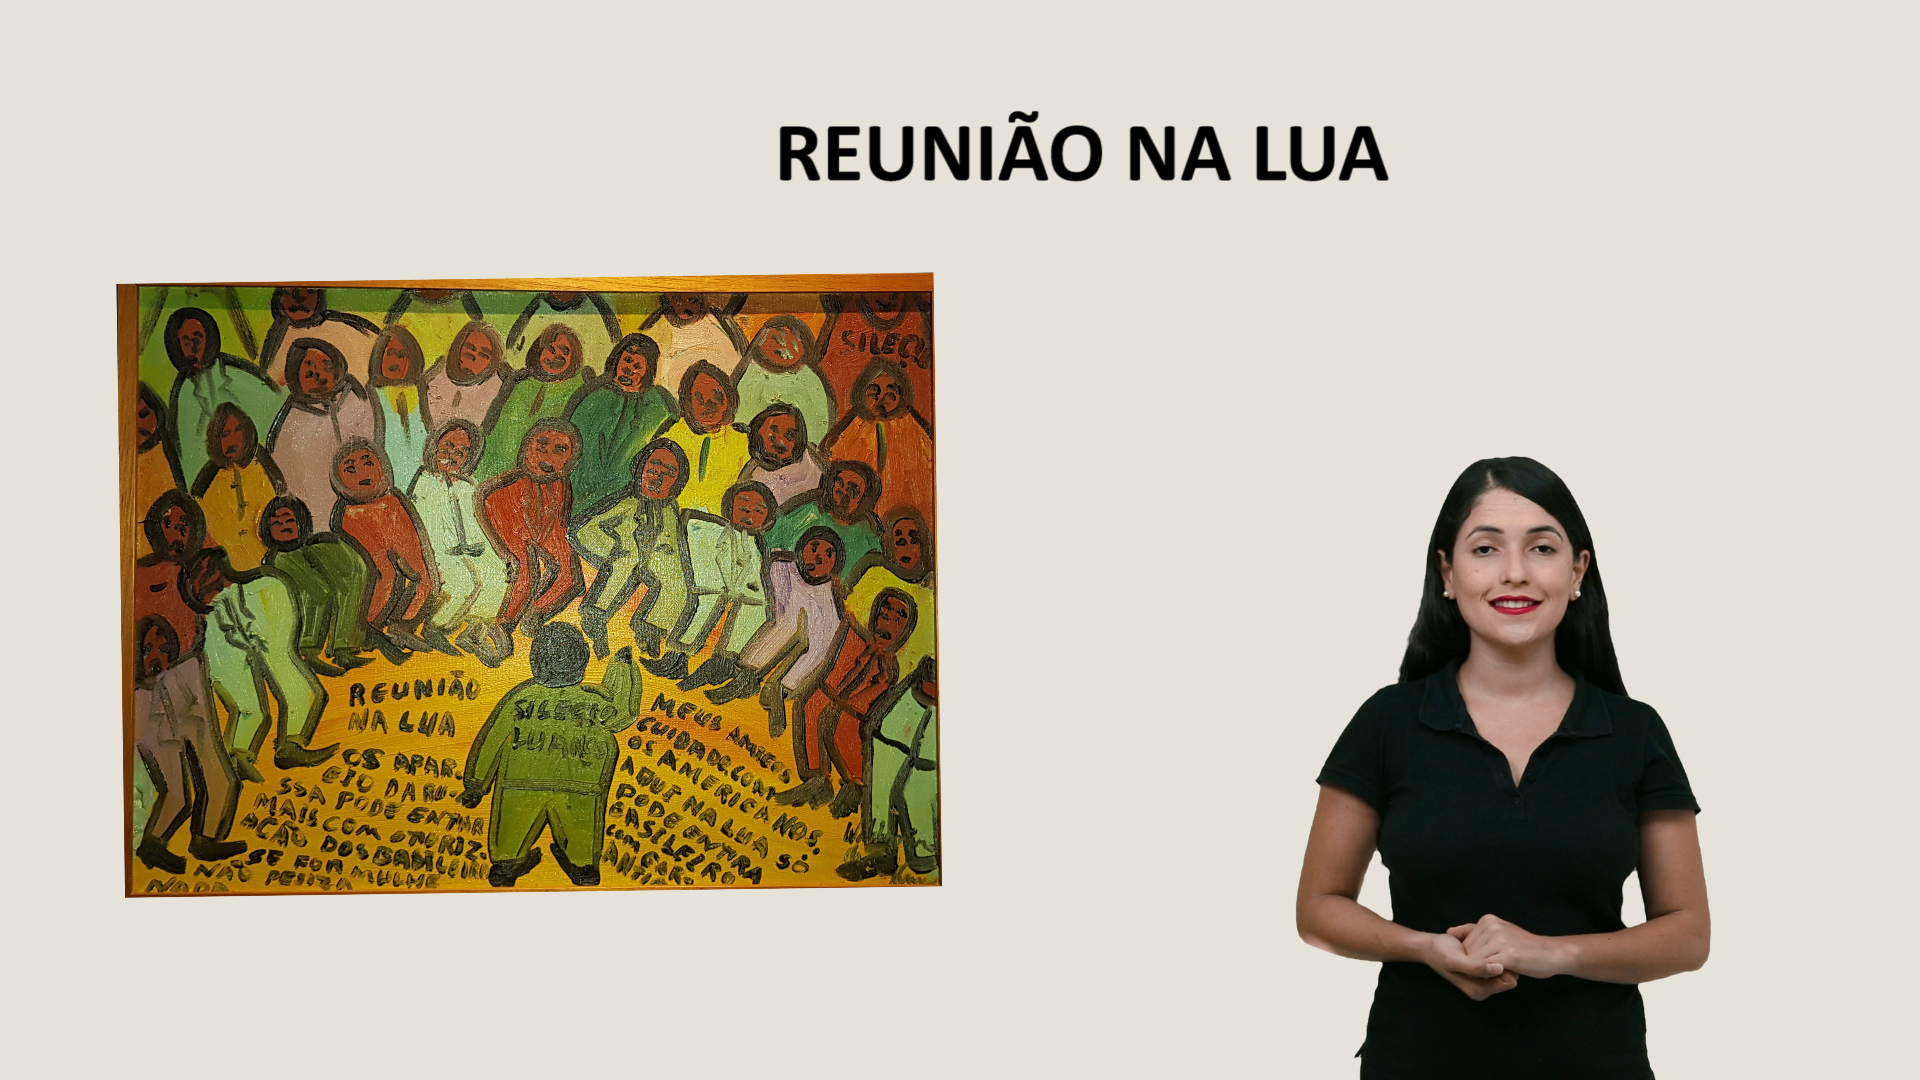 REUNIÃO NA LUA
REUNIÃO
NA LUA
OS APAR-
EIO DA RU-
SSA PODE ENTAR
MAIS COM OTORIZ-
AÇÃO DOS BASILEIRO
SE FOR MULHE
NÃO PESIZA
NADA
SILECIO
LUANO
MEUS AMIGOS
CUIDADO COM
OS AMERICANOS.
AQUI NA LUA SÓ
PODE ENTRA
BASILEIRO
COM CAR.